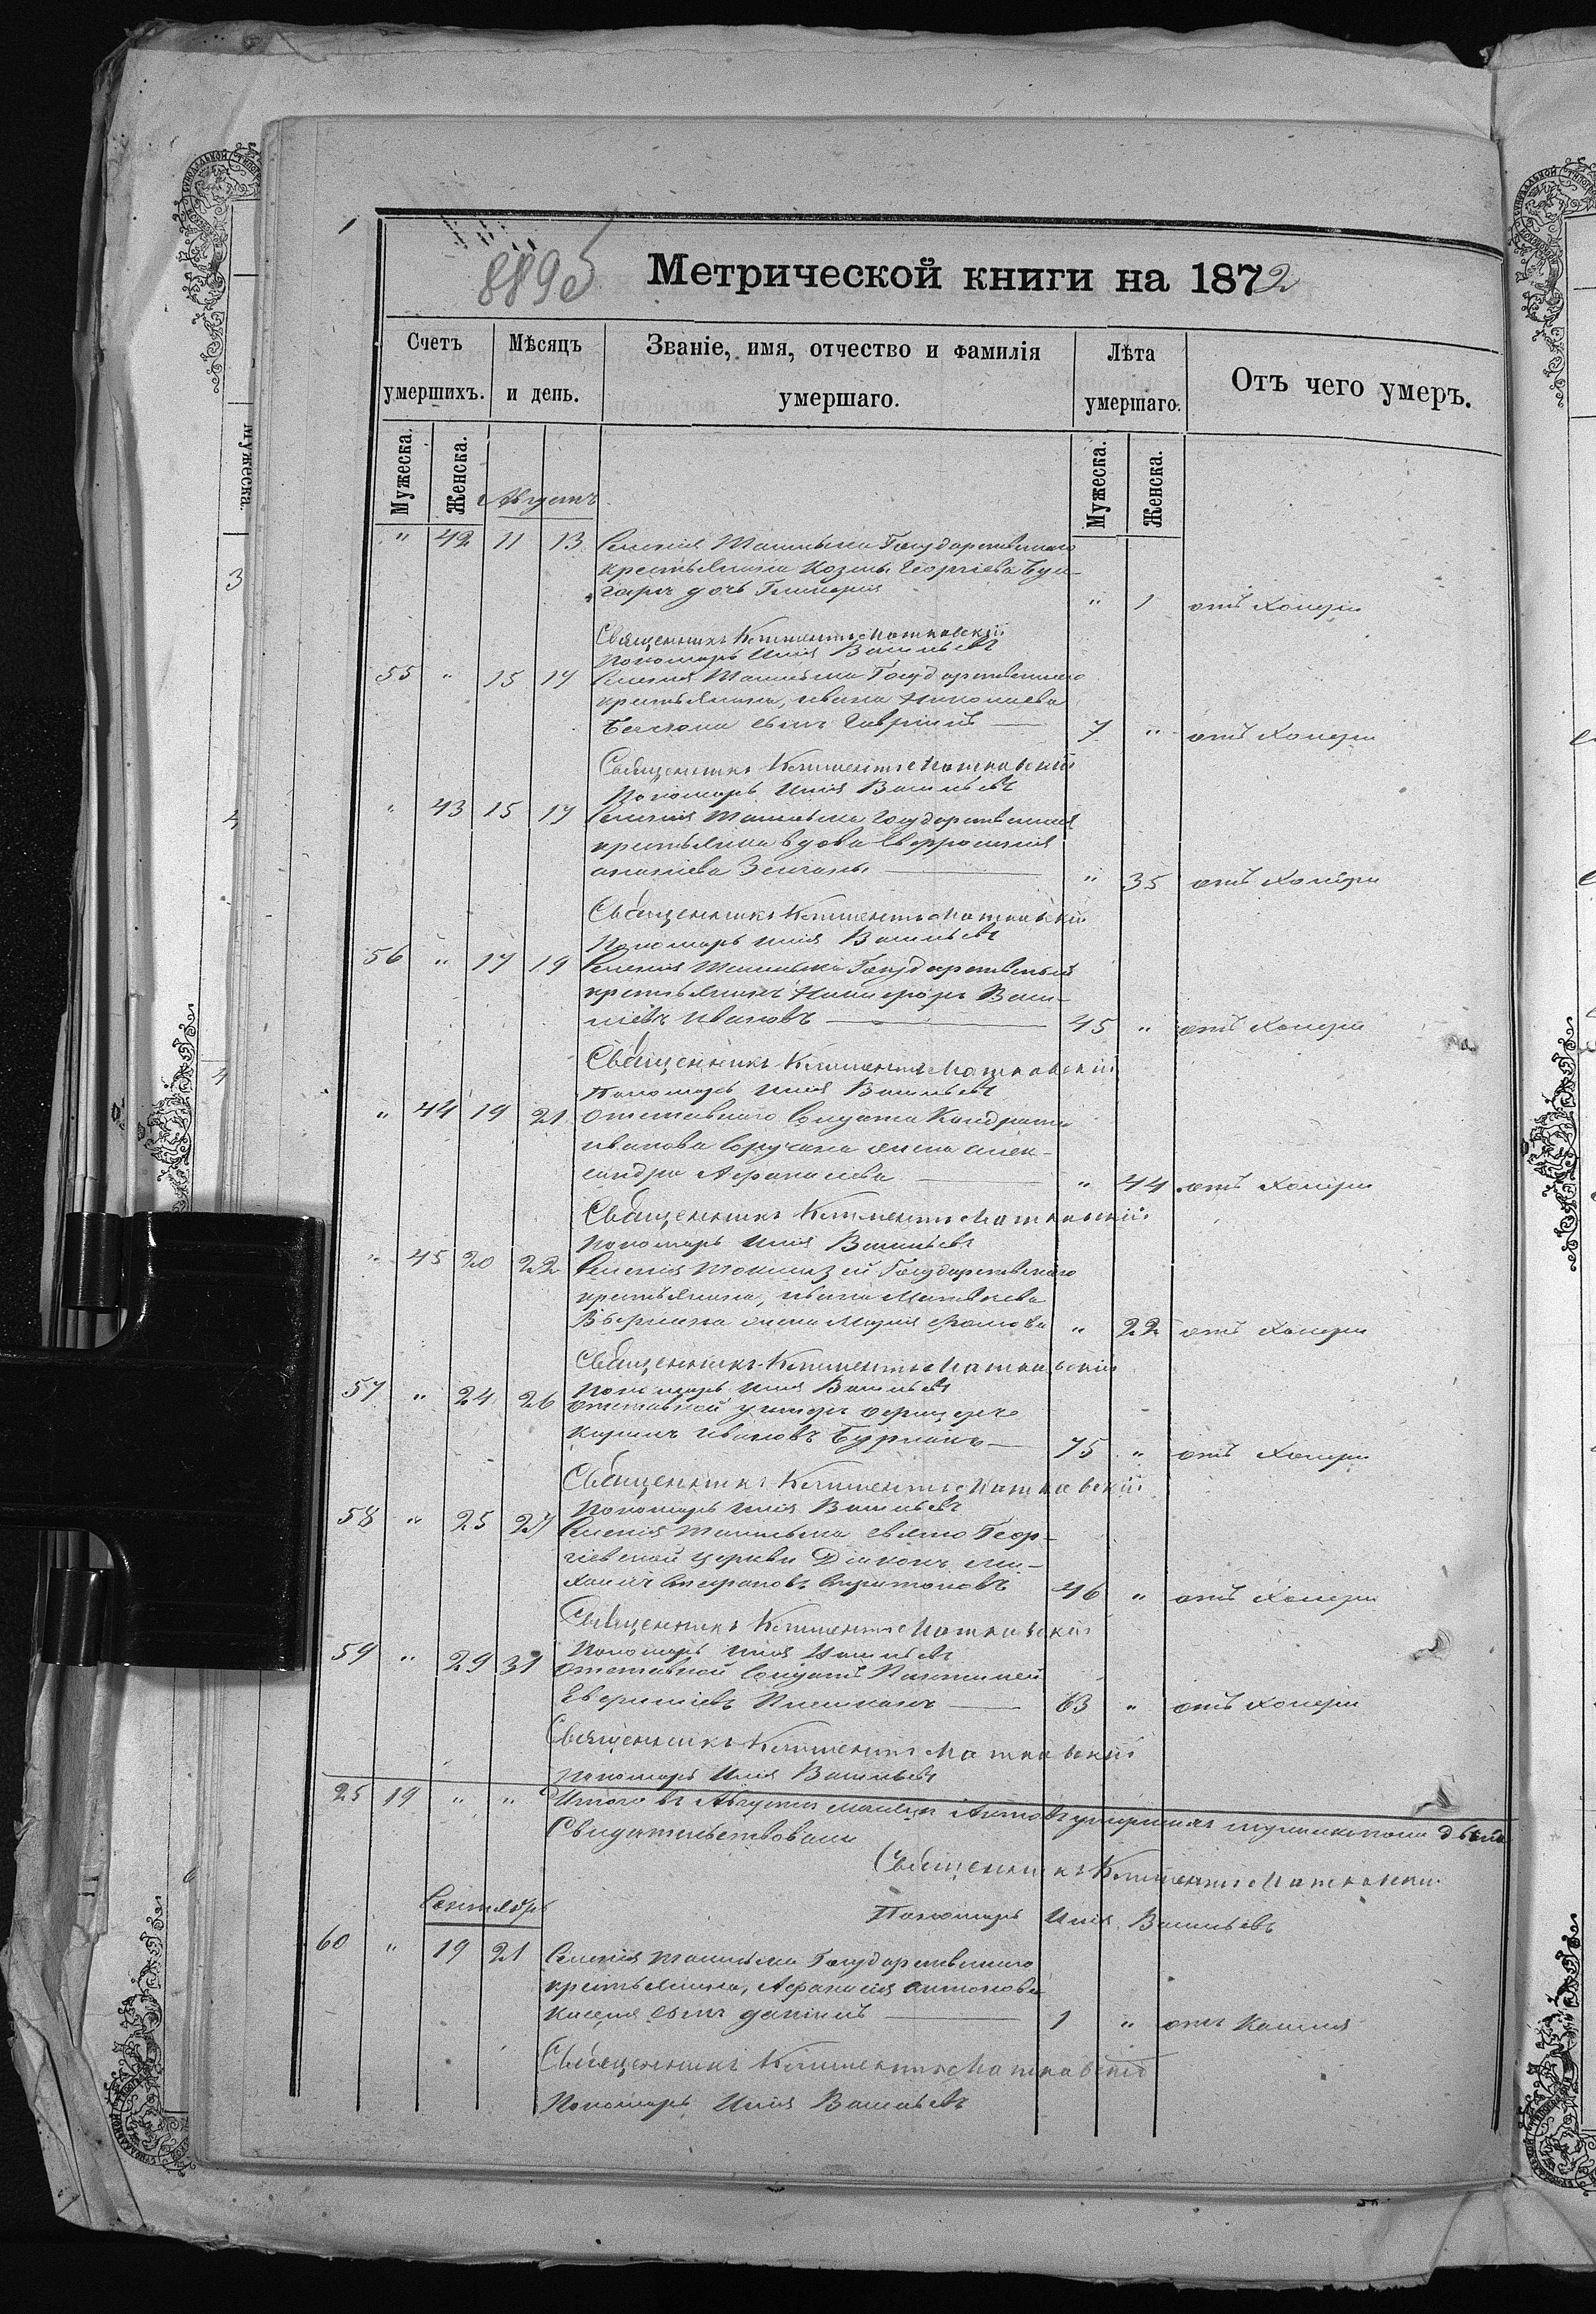 8895
Метрической книги на 1872
Счетъ умершихъ.
Мѣсяцъ и день.
Званіе, имя, отчество и фамилія умершаго.
Лѣта умершаго.
Отъ чего умеръ.
Мужеска.
Женска.
Мужеска.
Женска.
Августъ
" 42 11 13 Селенія Государственнаго
крестьянина Козмы Георгіева
дочь " 1 отъ холеры
Священникъ Климентъ Матковскій
Пономарь Илія Васильевъ
55 " 15 17 Селенія Государственнаго
крестьянина, Ивана Николаева
сынъ Гавріилъ 7 " отъ холеры
Священникъ Климентъ Матковскій
Пономарь Илія Васильевъ
" 43 15 17 Селенія Государственнаго
крестьянина вдова Евфросинія
" 35 отъ холеры
Священникъ Климентъ Матковскій
Пономарь Илія Васильевъ
56 " 17 19 Селенія Государственный
крестьянинъ Никифоръ Васи-
ліевъ Ивановъ 45 " отъ холеры
Священникъ Климентъ Матковскій
Пономарь Илія Васильевъ
" 44 19 21 Отставнаго Солдата Кондрата
Иванова жена Алек-
сандра Афанасіева " 44 отъ холеры
Священникъ Климентъ Матковскій
Пономарь Илія Васильевъ
" 45 20 22 Селенія Государственнаго
крестьянина, Ивана Матвѣева
жена Марія " 22 отъ холеры
Священникъ Климентъ Матковскій
Пономарь Илія Васильевъ
57 " 24 26 Отставной унтеръ офицеръ
Кирилъ Ивановъ 75 " отъ холеры
Священникъ Климентъ Матковскій
Пономарь Илія Васильевъ
58 " 25 27 Селенія Свято Геор-
гіевской церкви Діаконъ Ми-
хаилъ Стефановъ 46 " отъ холеры
Священникъ Климентъ Матковскій
Пономарь Илія Васильевъ
59 " 29 31 Отставной Солдатъ Пантилей
63 " отъ холеры
Священникъ Климентъ Матковскій
Пономарь Илія Васильевъ
25 19 " " Итого въ Августѣ мѣсяцѣ умершихъ
Свидѣтельствовали
Священникъ Климентъ Матковскій
Пономарь Илія Васильевъ
Сентябрь
60 " 19 21 Селенія Государственнаго
крестьянина, Афанасія Антонова
сынъ Даніилъ 1 " отъ Кашля
Священникъ Климентъ Матковскій
Пономарь Илія Васильевъ